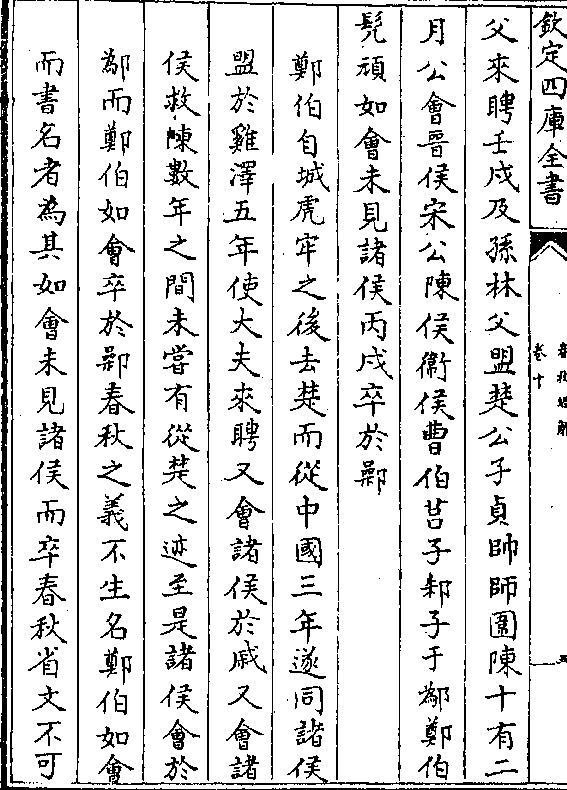 欽定四庫全書
卷十
父來聘壬戌及孫林父盟楚公子貞帥師圍陳十有二
月公會晉侯宋公陳侯衞侯曹伯莒子邾子于鄬鄭伯
髡頑如會未見諸侯丙戌卒於鄵
鄭伯自城虎牢之後去楚而從中國三年遂同諸侯
盟於雞澤五年使大夫來聘又會諸侯於戚又會諸
侯救陳數年之間未嘗有從楚之迹至是諸侯會於
鄬而鄭伯如會卒於鄵春秋之義不生名鄭伯如會
而書名者為其如會未見諸侯而卒春秋省文不可